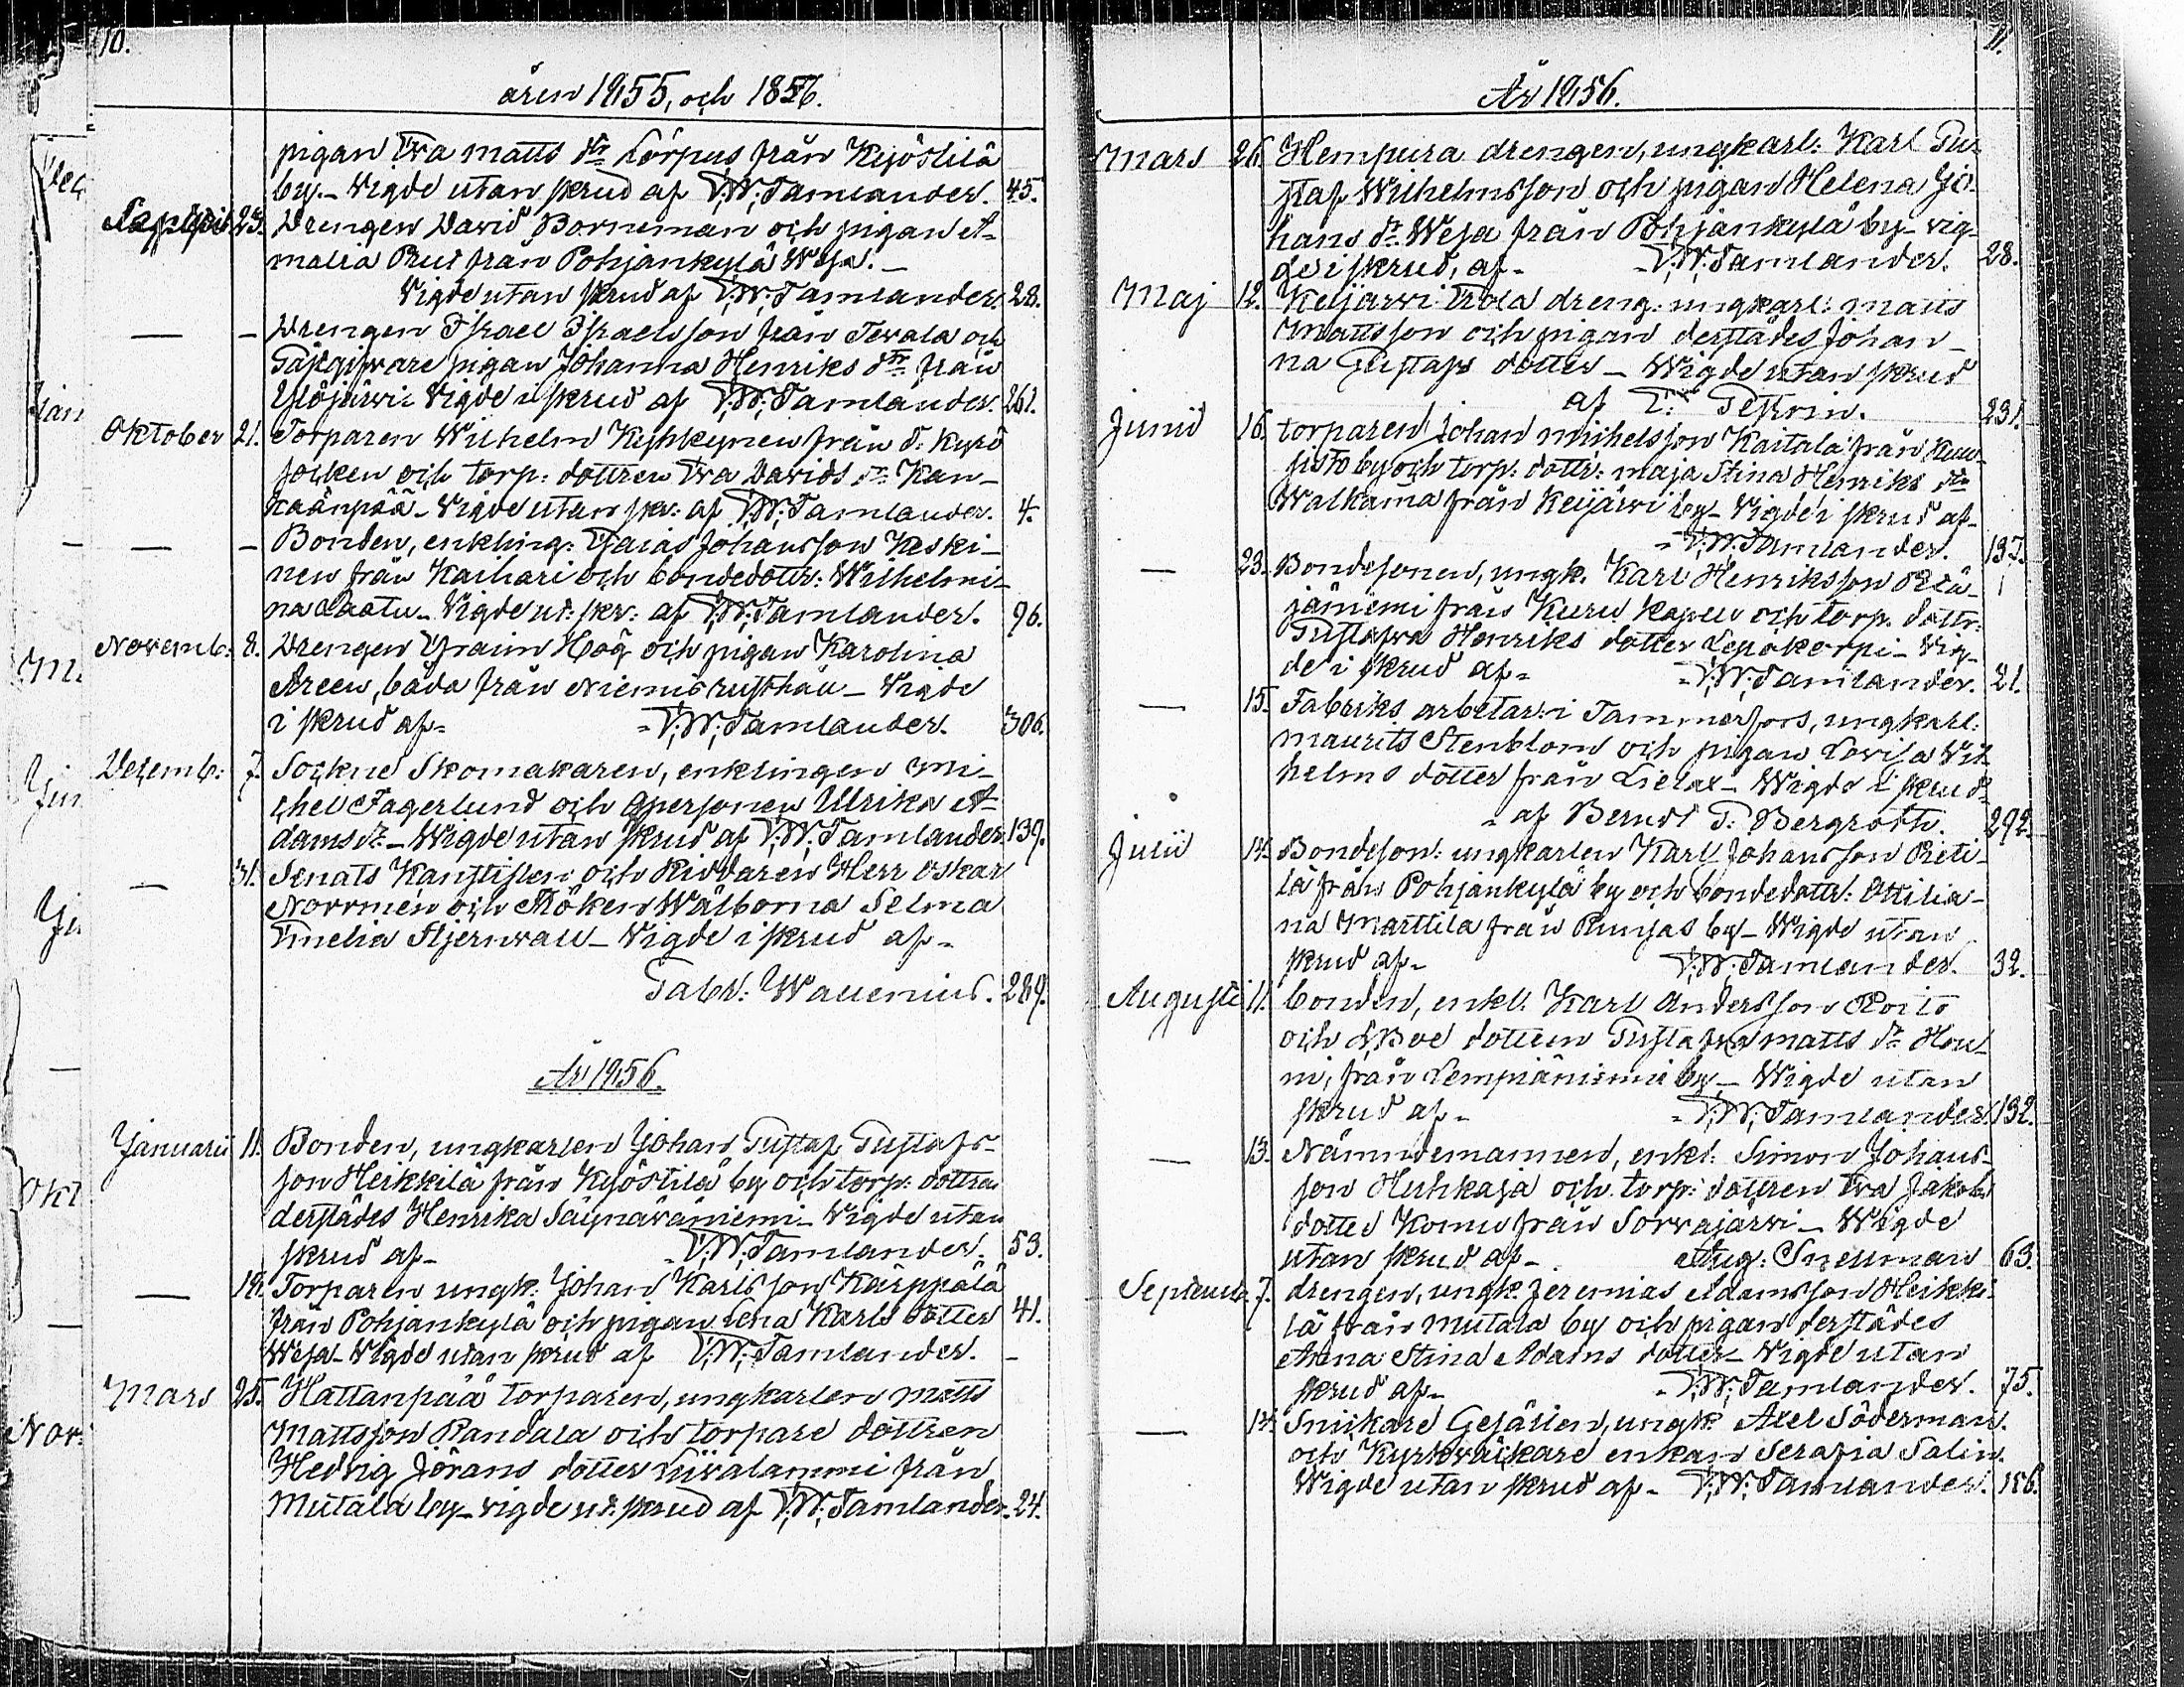 10.
åren 1855, och 1856.
pigan Eva Matts dtr Lörpus från Keijöslilä
by.- Vigde utan skrud af F:W:Tamlander. 45.
23. Drengen David Borneman och pigan A-
malia Prut från Pohjankylä Wesa. -
Vigde utan skrud af F:W:Tamlander. 28.
— - Drengen Israel Israelsson från Tevala och
Gäsgifvare pigan Johanna Henriks dtr från
Ylöjärvi. Vigde i skrud af F:W:Tamlander. 261.
Oktober 21. Torparen Wilhelm Kyhkynen från T: Kyrö
socken och torp: dottren Eva Davids dr Kan-
kaanpää - Vigde utan skr: af F:W:Tamlander. 4.
— - Bonden, enkling: Esaias Johansson Keski-
nen från Kaihari och bondedottr: Wilhelmi-
na Laatu - Vigde ut: skr: af F:W:Tamlander. 96.
Novemb: 8. Drengen Efraim Hög och pigan Karolina
Areen, båda från Niemis rusthåll - Vigde
i skrud af - F:W:Tamlander. 306.
Desemb: 7. Sockne Skomakaren, enklingen Mi-
chel Fagerlund och qpersonen Ulrika A-
dams dr - Wigde utan skrud af F:W:Tamlander. 139.
— 31. Senats Kanslisten och Riddaren Herr Oskar
Norrmén och Fröken Wälborna Selma
Emelia Stjernvall - Vigde i skrud af -
Gabr: Wallenius. 289.
År 1856.
Januarii 11. Bonden, ungkarlen Johan Gustaf Gustafs-
son Heikkilä från Kyöstilä by och torp: dottren
derstädes Henrika Säynäväniemi - Vigde utan
skrud af - F:W:Tamlander. 53.
— 18. Torparen ungk: Johan Karlsson Kärppälä
från Pohjankylä och pigan Lena Karls dotter 41.
Wesa - Vigde utan skrud af F:W:Tamlander. -
Mars 25. Hattanpää torparen, ungkarlen Matts
Mattsson Randala och torpare dottren
Hedvig Jörans dotter Liivalammi från
Mutala by - vigde ut: skrud af F:W:Tamlander. 24.
11.
År 1856.
Mars 26. Hempura drengen, ungkarl: Karl Gu-
staf Wilhelmsson och pigan Helena Jo-
hans dr Wesa från Pohjankylä by - vig-
de i skrud, af - F:W:Tamlander. 28.
Maj 12. Keijärvi Erola dreng: ungkarl: Matts
Mattsson och pigan derstädes Johan-
na Gustafs dotter - Wigde utan skrud
af 231.
Junii 16. torparen Johan Michelsson Kaitala från Kuu-
sisto by och torp: dottr: Maja Stina Henriks dtr
Walkama från Keijärvi by - Vigde i skrud af -
F:W:Tamlander. 137.
— 23. Bondesonen, ungk. Karl Henriksson Pelä-
jäniemi från Kuru kapell och torp. dottr:
Gustafva Henriks dotter Lepäkorpi - Vig-
de i skrud af - F:W:Tamlander. 21.
— 15. Fabriks arbetar: i Tammerfors, ungkarl:
Maurits Stenblom och pigan Lovisa Wil-
helms dotter från Lielax - Wigde i skrud
af Berndt G: Bergroth. 292.
Julii 14. Bondeson: ungkarlen Karl Johansson Reti-
lä från Pohjankylä by och bondedottr: Ottilia-
na Marttila från Runsas by - Wigde utan
skrud af - F:W:Tamlander. 32.
Augusti 11. bonden, enkl. Karl Andersson Roito
och dottern Gustafva Matts dr Hou-
ni, från Lempiäniemi by - Wigde utan
skrud af - F:W:Tamlander. 132.
— 13. Nämndemannen, enkl: Simon Johans-
son Huhkaja och torp: dottren Eva Jakobs
dotter Komu från Sorvajärvi - Wigde
utan skrud af - Aug: Snellman 63.
Septemb. 7. drengen, ungk. Jeremias Adamsson Heikki-
lä från Mutala by och pigan derstädes
Anna Stina Adams dotter - Vigde utan
skrud af - F:W:Tamlander. 75.
— 14. Snickare Gesällen, ungk: Axel Söderman
och Kyrkväckare enkan Serafia Salin.
Wigde utan skrud af - F:W:Tamlander. 186.